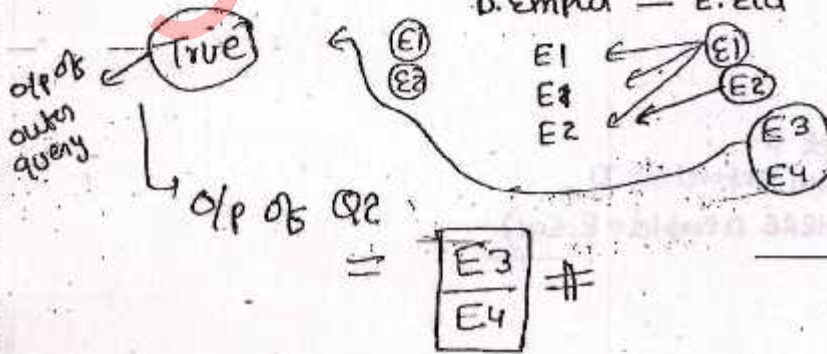 D.empId — E.eId
True
o/p of
outer
query
E1
E2
E1
E1
E2
E1
E2
E3
E4
O/p of Q2
=
E3
E4